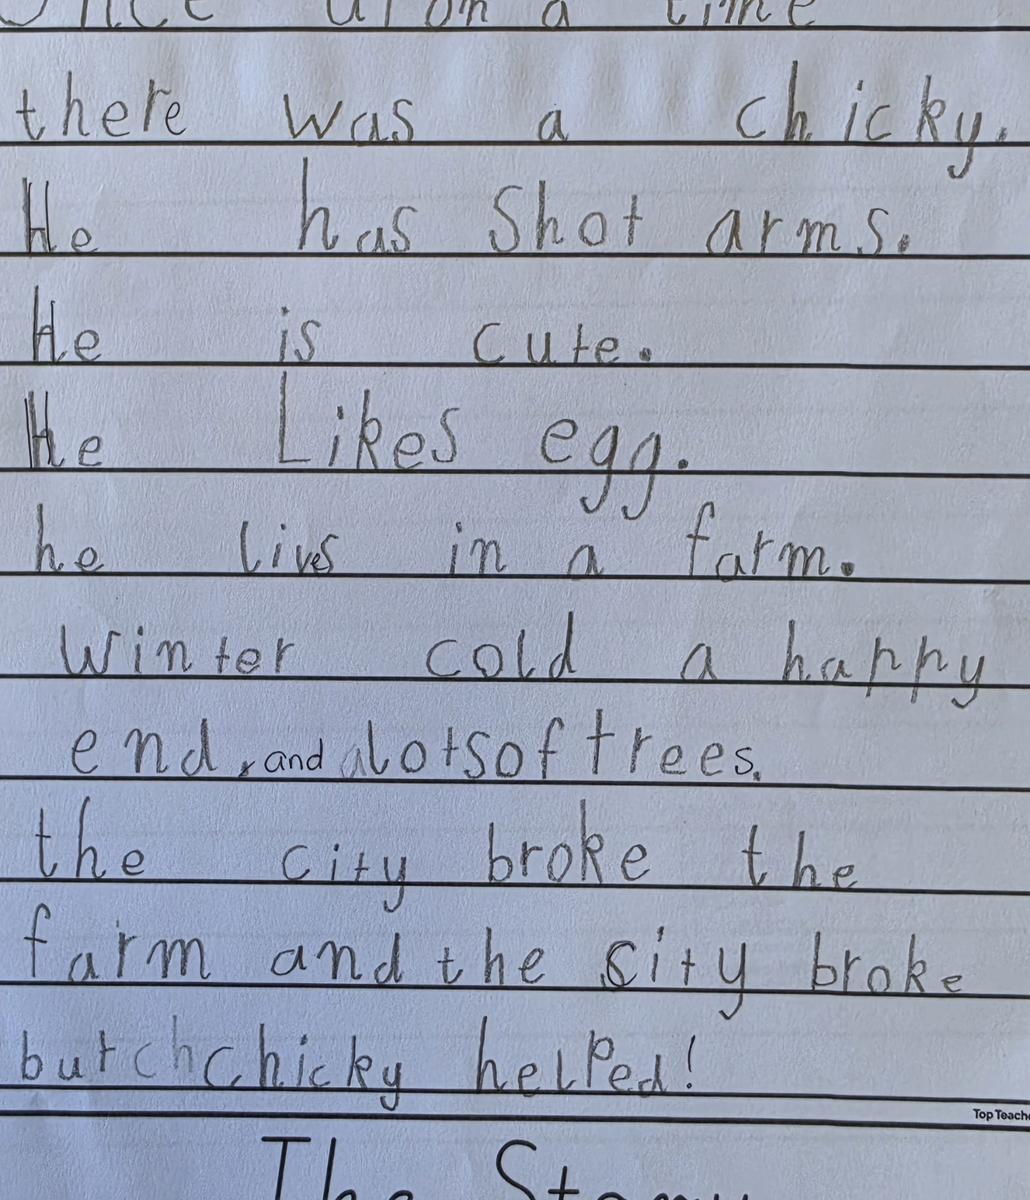 Once upon a time
there was a chicky.
He has Shot arms.
He is cute.
He Likes egg.
he lives in a farm.
Winter cold a happy
end, and alotsof trees.
the city broke the
farm and the city broke
but chchicky helped!
Top Teache
The Story